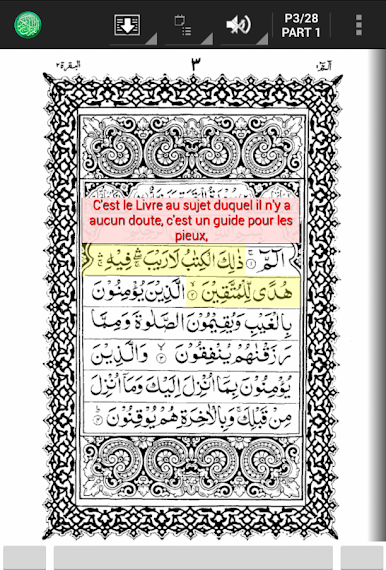 P3/28
PART 1
البقرة ٢
٣
الٓمّٓ ١
C'est le Livre au sujet duquel il n'y a
aucun doute, c'est un guide pour les
pieux,
الٓمّٓ ۚ ذٰلِكَ الْكِتٰبُ لَا رَيْبَ ۛ فِيْهِ ۛ
هُدًى لِّلْمُتَّقِيْنَ ۙ الَّذِيْنَ يُؤْمِنُوْنَ
بِالْغَيْبِ وَيُقِيْمُوْنَ الصَّلٰوةَ وَمِمَّا
رَزَقْنٰهُمْ يُنْفِقُوْنَ ۙ وَالَّذِيْنَ
يُؤْمِنُوْنَ بِمَآ اُنْزِلَ اِلَيْكَ وَمَآ اُنْزِلَ
مِنْ قَبْلِكَ وَبِالْاٰخِرَةِ هُمْ يُوْقِنُوْنَ ۗ